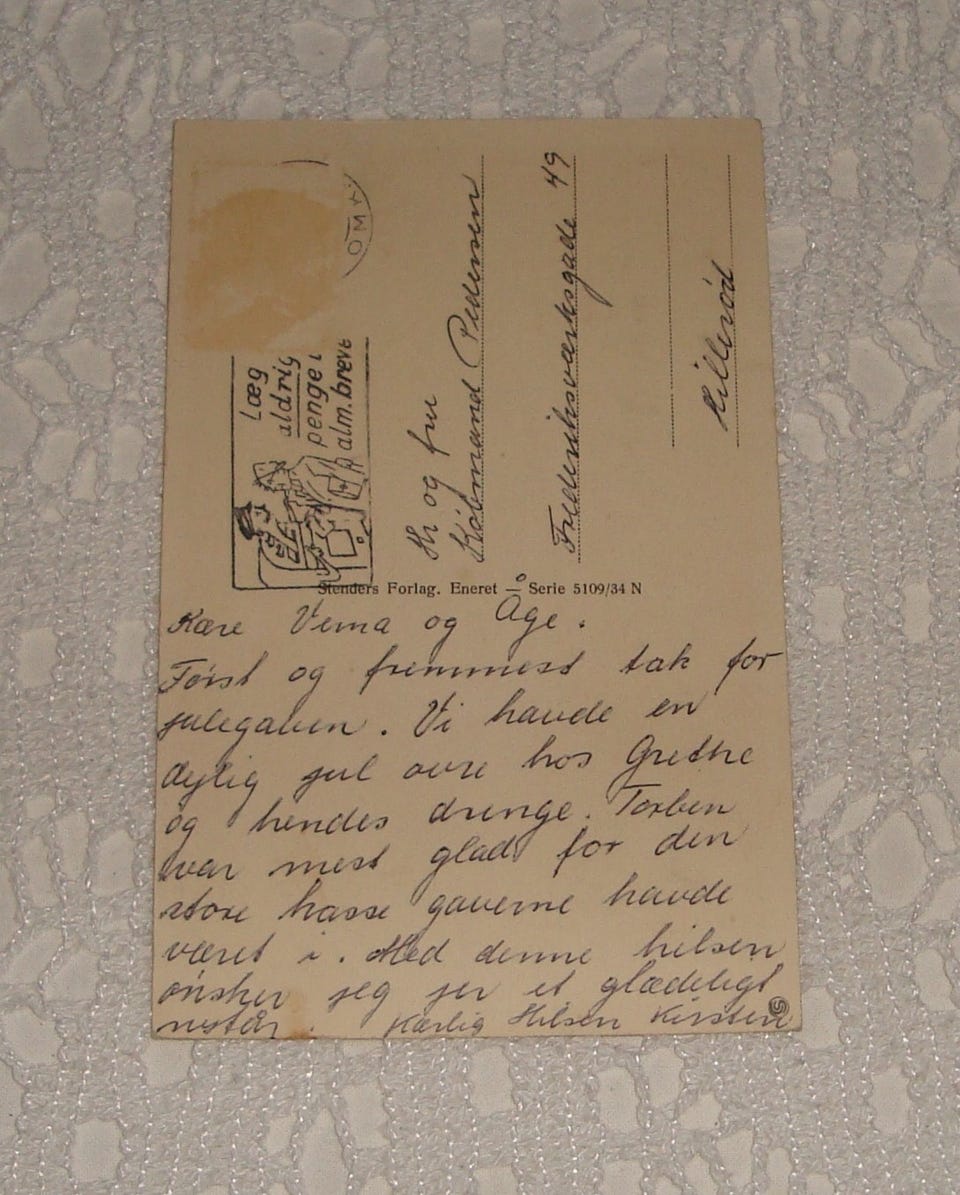 Læg
aldrig
penge i
alm. breve
OMK
Hr og fru
Købmand Pedersen
Frederiksværksgade 49
Hillerød
Stenders Forlag. Eneret — Serie 5109/34 N
Kære Verna og Åge.
Først og fremmest tak for
julegaven. Vi havde en
dejlig jul ovre hos Grethe
og hendes drenge. Torben
var mest glad for den
store kasse gaverne havde
været i. Med denne hilsen
ønsker jeg jer et glædeligt
nytår. Kærlig Hilsen Kirsten